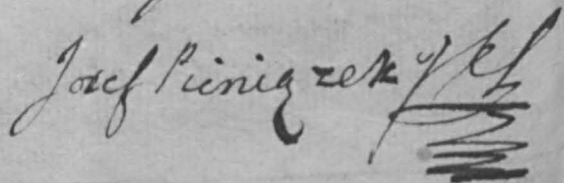 Jozef Pieniązek